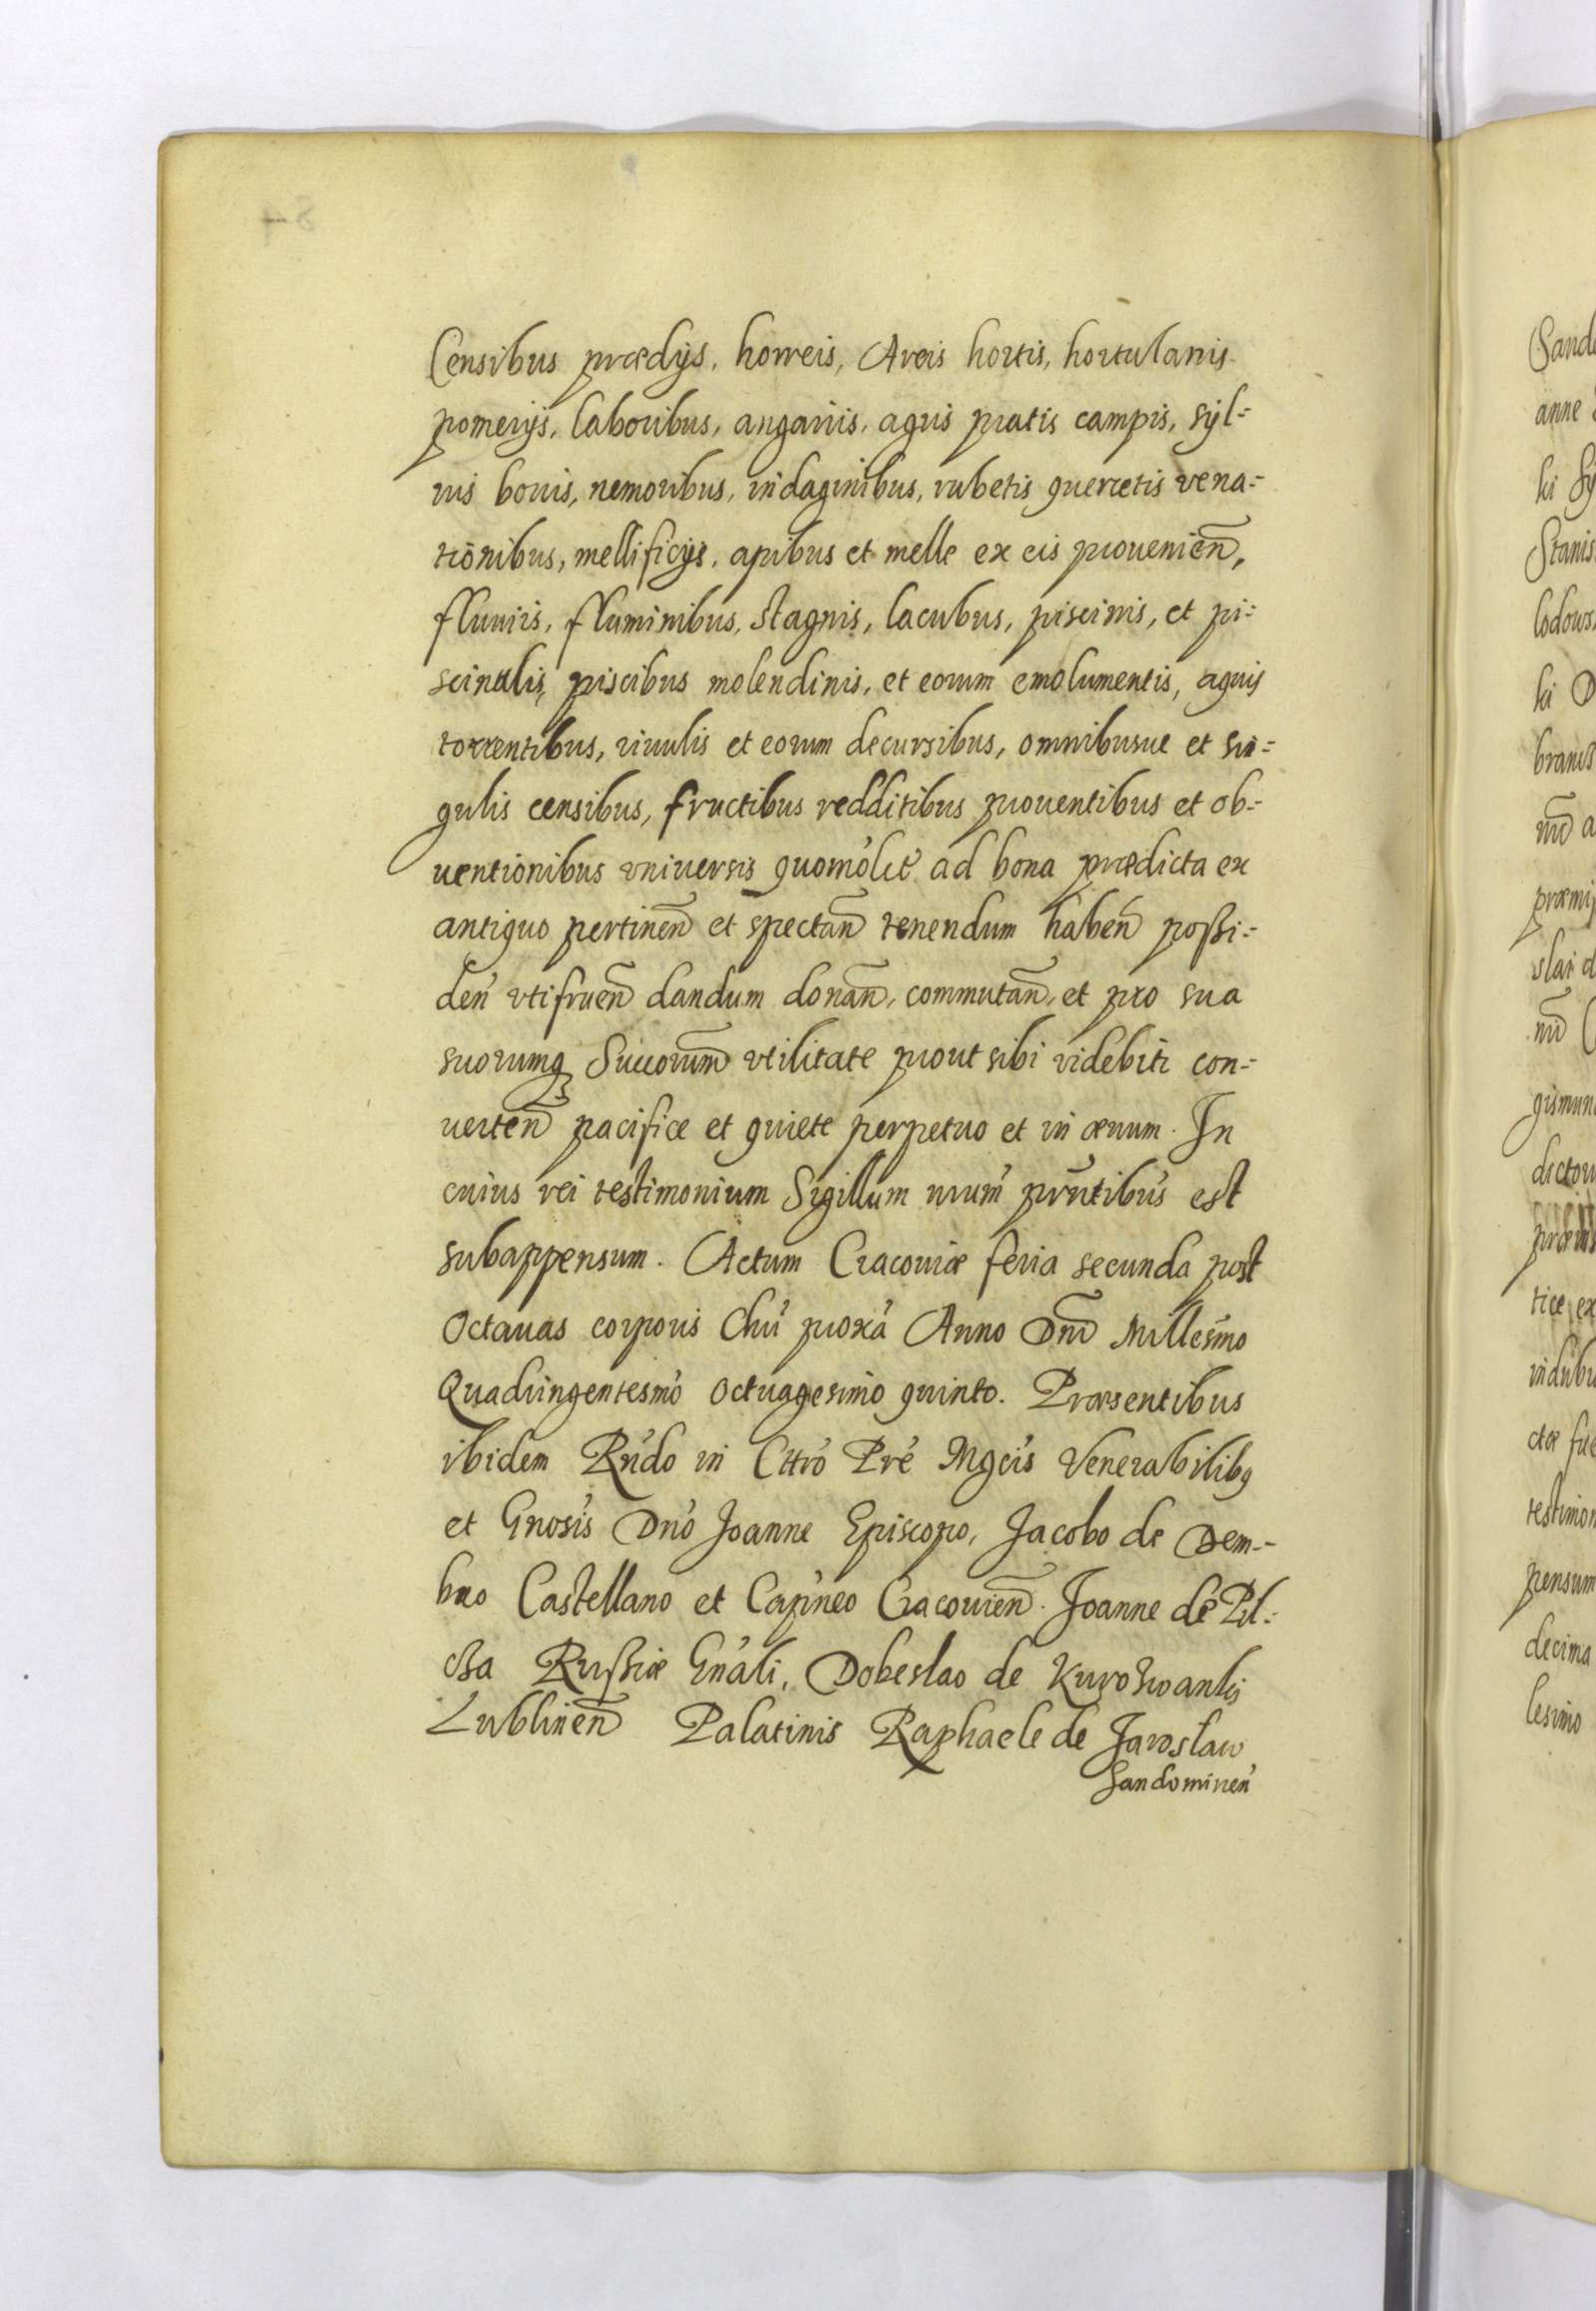 Censibus prædijs, horreis, Areis hortis, hortulanis
pomerijs, laboribus, angariis, agris pratis campis, syl=
uis boris, nemoribus, indaginibus, rubetis quercetis vena=
tionibus, mellificijs, apibus et melle ex eis prouenien̄,
fluuiis, fluminibus, stagnis, lacubus, piscinis, et pi=
scinulis, piscibus molendinis, et eorum emolumentis, aquis
torrentibus, riuulis et eorum decursibus, omnibusue et sin=
gulis censibus, fructibus redditibus prouentibus et ob=
uentionibus vniuersis quomólt̉ ad bona prædicta ex
antiquo pertinen̄ et spectan̄ tenendum haben̄ possi=
den̄ vtifruen̄ dandum donan̄, commutan̄, et pro sua
suorumq Succorum̄ vtilitate prout sibi videbitr con=
uerten̄ pacifice et quiete perpetuo et in æuum. In
cuius rei testimonium Sigillum nrum̉ prn̄tibus̉ est
subappensum. Actum Cracouiæ feria secunda post
Octauas corporis Chrỉ proxả Anno Dnī Millesimo
Quadringentesimo octuagesimo quinto. Præsentibus
ibidem Rńdo in Chró Pré Mgcis̉ Venerabilibq
et Gnosis̉ Dnó Joanne Episcopo, Jacobo de Dem=
bno Castellano et Capńeo Cracouien̄. Joanne de Pil=
cza Russiæ Gnáli, Dobeslao de Kurozwanki
Lublinen̄ Palatinis Raphaele de Jaroslaw
Sandomiren̉
54
Sand
anne
ki Sy
Stanis
lodows
ki D
branis
nu̅ a
præmi
slai d
ni̅
gismun
dictor
præ
tice ex
indubi
ctæ fue
testimon
pensum
decima
lesimo